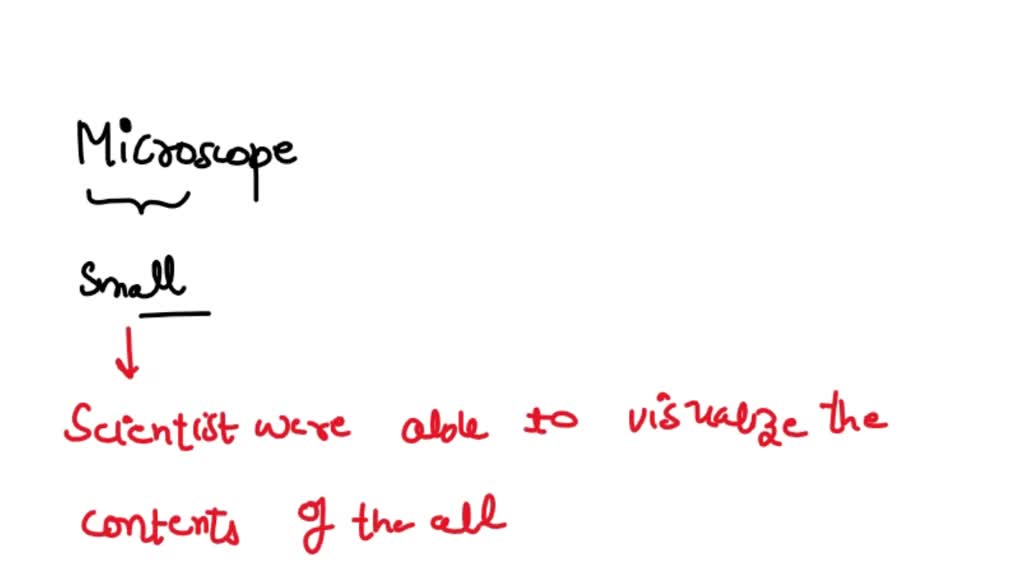 Microscope
Small
Scientist were able to visualize the
contents of the cell